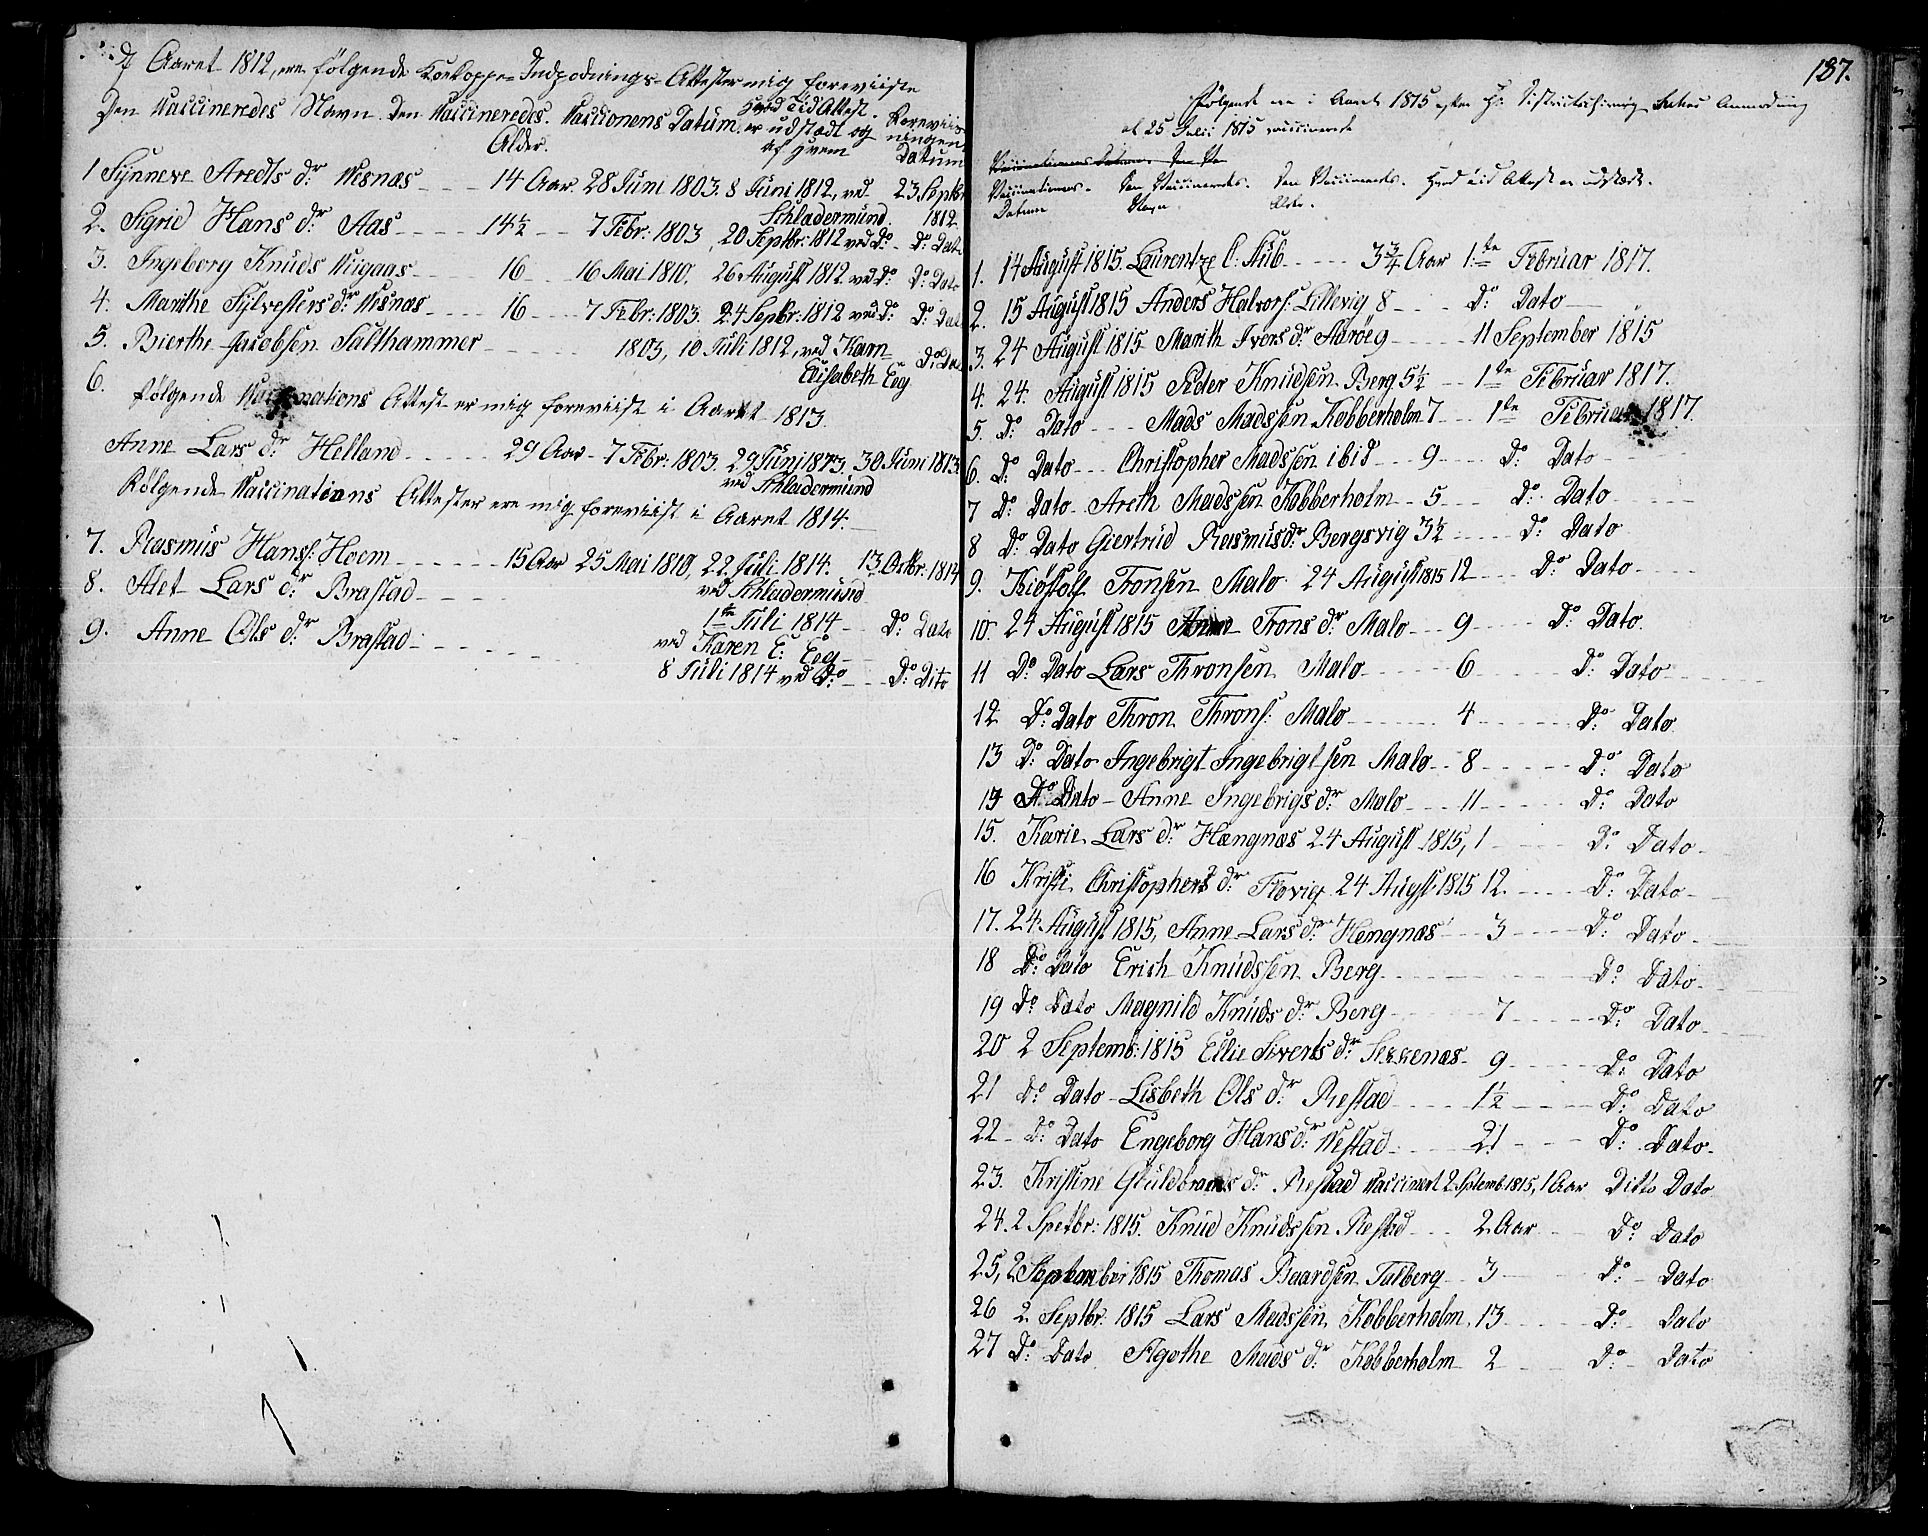 I Aaret 1812, ere følgende Koekoppe-Indpodnings-Attester mig foreviiste
Den Vaccineredes Navn. Den Vaccineredes Alder. Vaccionens Datum. Hvad Tid Attest. er udstædt og af Hvem Foreviisningens Datum
1 Synneve Aredts dr Visnæs - - - 14 Aar. 28 Juni 1803. 8 Juni 1812, ved Schladermund. 23 Septbr 1812
2. Sigrid Hans dr Aas - - - - 14½ - - 7 Febr: 1803, 20 Septbr: 1812 ved Do - Do: Dato
3. Ingeborg Knuds Wigaas - - - 16 - - 16 Mai 1810, 26 August 1812 ved Do Do: Dato
4. Marithe Sylvesters dr Visnæs - - - 16 - - 7 Febr: 1803. 24 Sepbr: 1812 ved Do: Do: Dato
5. Bierthe Jacobsen Salthammer - - - 1803, 10 Juli 1812, ved Karn Elisabeth Eeg Do: Dato
6. følgende Vaccinations Attest er mig foreviist i Aaret 1813.
Anne Lars dr Helland - - - - 29 Aar - 7 Febr: 1803. 29 Juni 1813. 30 Juni 1813.
ved Schladermund
Følgende Vaccinations Attester ere mig foreviist i Aaret 1814. -
7. Rasmus Hans: Hoem - - - - - 15 Aar 25 Mai 1810, 22 Juli 1814. 13 Octbr: 1814
ved Schladermund
8. Alet Lars dr Brastad - - - 1te Juli 1814 - Do: Dato
ved Karen E: Eeg
9. Anne Ols dr Brastad - - - - 8 Juli 1814 ved Do - - Do: Dito
187.
Følgende ere i Aaret 1815 efter Hr: Anmodning
af 25 Julii 1815 vaccinerede
Vaccinationens Datum Den Va
Vaccinationens Datum Den Vaccineredes Navn Den Vaccineredes Alder. Hvad Tid Attest er udstædt.
1. 14 August 1815. Laurentze C: Aub - - - 3¾ Aar 1:te Februar 1817.
2. 15 August 1815 Anders Halvors: Lillevig 8 - - - Do: Dato
3. 24 August 1815 Marith Ivers dr Aarøe 9 - - - - 11 September 1815
4. 24. August 1815 Peder Knudsen Berg 5½ - - 1te Februar 1817.
5. Do: Dato - - - Mads Madssen Kobberholm 7 - - 1te Februar 1817.
6. Do: Dato - - Christopher Madssen ibid - - 9 - - Do: Dato - - -
7 Do: Dato - Areth Madssen Kobberholm - - 5 - - - Do: Dato - - - -
8 Do: Dato Giertrud Rasmusdr Bergsvig 3½ - - - - Do: Dato
9. Kiøstolf Tronsen Malo 24 August 1815 12 - - - Do: Dato - - -
10. 24 August 1815 Anne Trons dr Malo - - 9 - - - - Do: Dato.
11 Do: Dato Lars Thronsen Malo - - - - 6 - - - - Do: Dato - - - - -
12 Do: Dato Thron Throns: Malo - - - - 4 - - - - Do: Dato.
13 Do: Dato Ingebrigt Ingebrigtsen Malo - - 8 - - - - - Do: Dato
14 Do: Dato - Anne Ingebrigs dr Malo - - - 11 - - - - Do: Dato
15. Karie Lars dr Hængnæs 24 August 1815, 1 - - - - Do: Dato -
16 Kristi Christophers dr Flovig 24 Augst: 1815 12. - - - - Do: Dato - -
17. 24 August 1815, Anne Lars dr Hengnæs - - 3 - - - - Do: Dato - -
18 Do: Dato Erich Knudssen Berg - - - - - Do: Dato -
19 Do: Dato Magnild Knuds dr Berg - - - - 7 - - - - Do: Dato - - -
20 2 Septemb: 1815 Ellie Siverts dr - 9 - - - - Do: Dato
21 Do: Dato - Lisbeth Ols dr Restad - - - - 1½ - - - - Do: Dato
22 - Do: Dato Engeborg Hans dr Vestad - - - 21 - - - Do: Dato -
23. Kristine Guldbrands dr Restad vaccineret 2 Septemb: 1815, 1 Aar Ditto Dato
24. 2 Spetbr: 1815. Knud Knudssen Restad - - - 2 Aar - - - Do: Dato
25, 2 September 1815 Thomas Baardsen Talberg - - 3 - - - Do: - Dato
26 2 Septbr: 1815 Lars Madssen Kobberholm, 13 - - - - - Do: - Dato
27 Do: Dato Agothe Mads dr Kobberholm - 2 - - - Do: - Dato